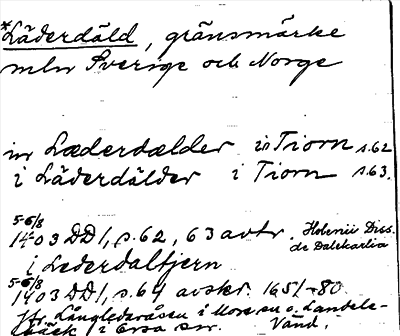 *Läderdäld, gränsmärke
mln Sverige och Norge
in Læderdælder in Tiorn s.62
i Läderdälder i Tiorn s.63.
5-6/8
1403 DD 1, s.62, 63 avtr. Holenii Diss. de Dalekarlia
i Lederdaltjern
5-6/8
1403 DD 1, s.64 avskr. 1651-80
Jfr Långlederåsen i Mora sn o. Landets-
bäck i Orsa sn. Vänd.